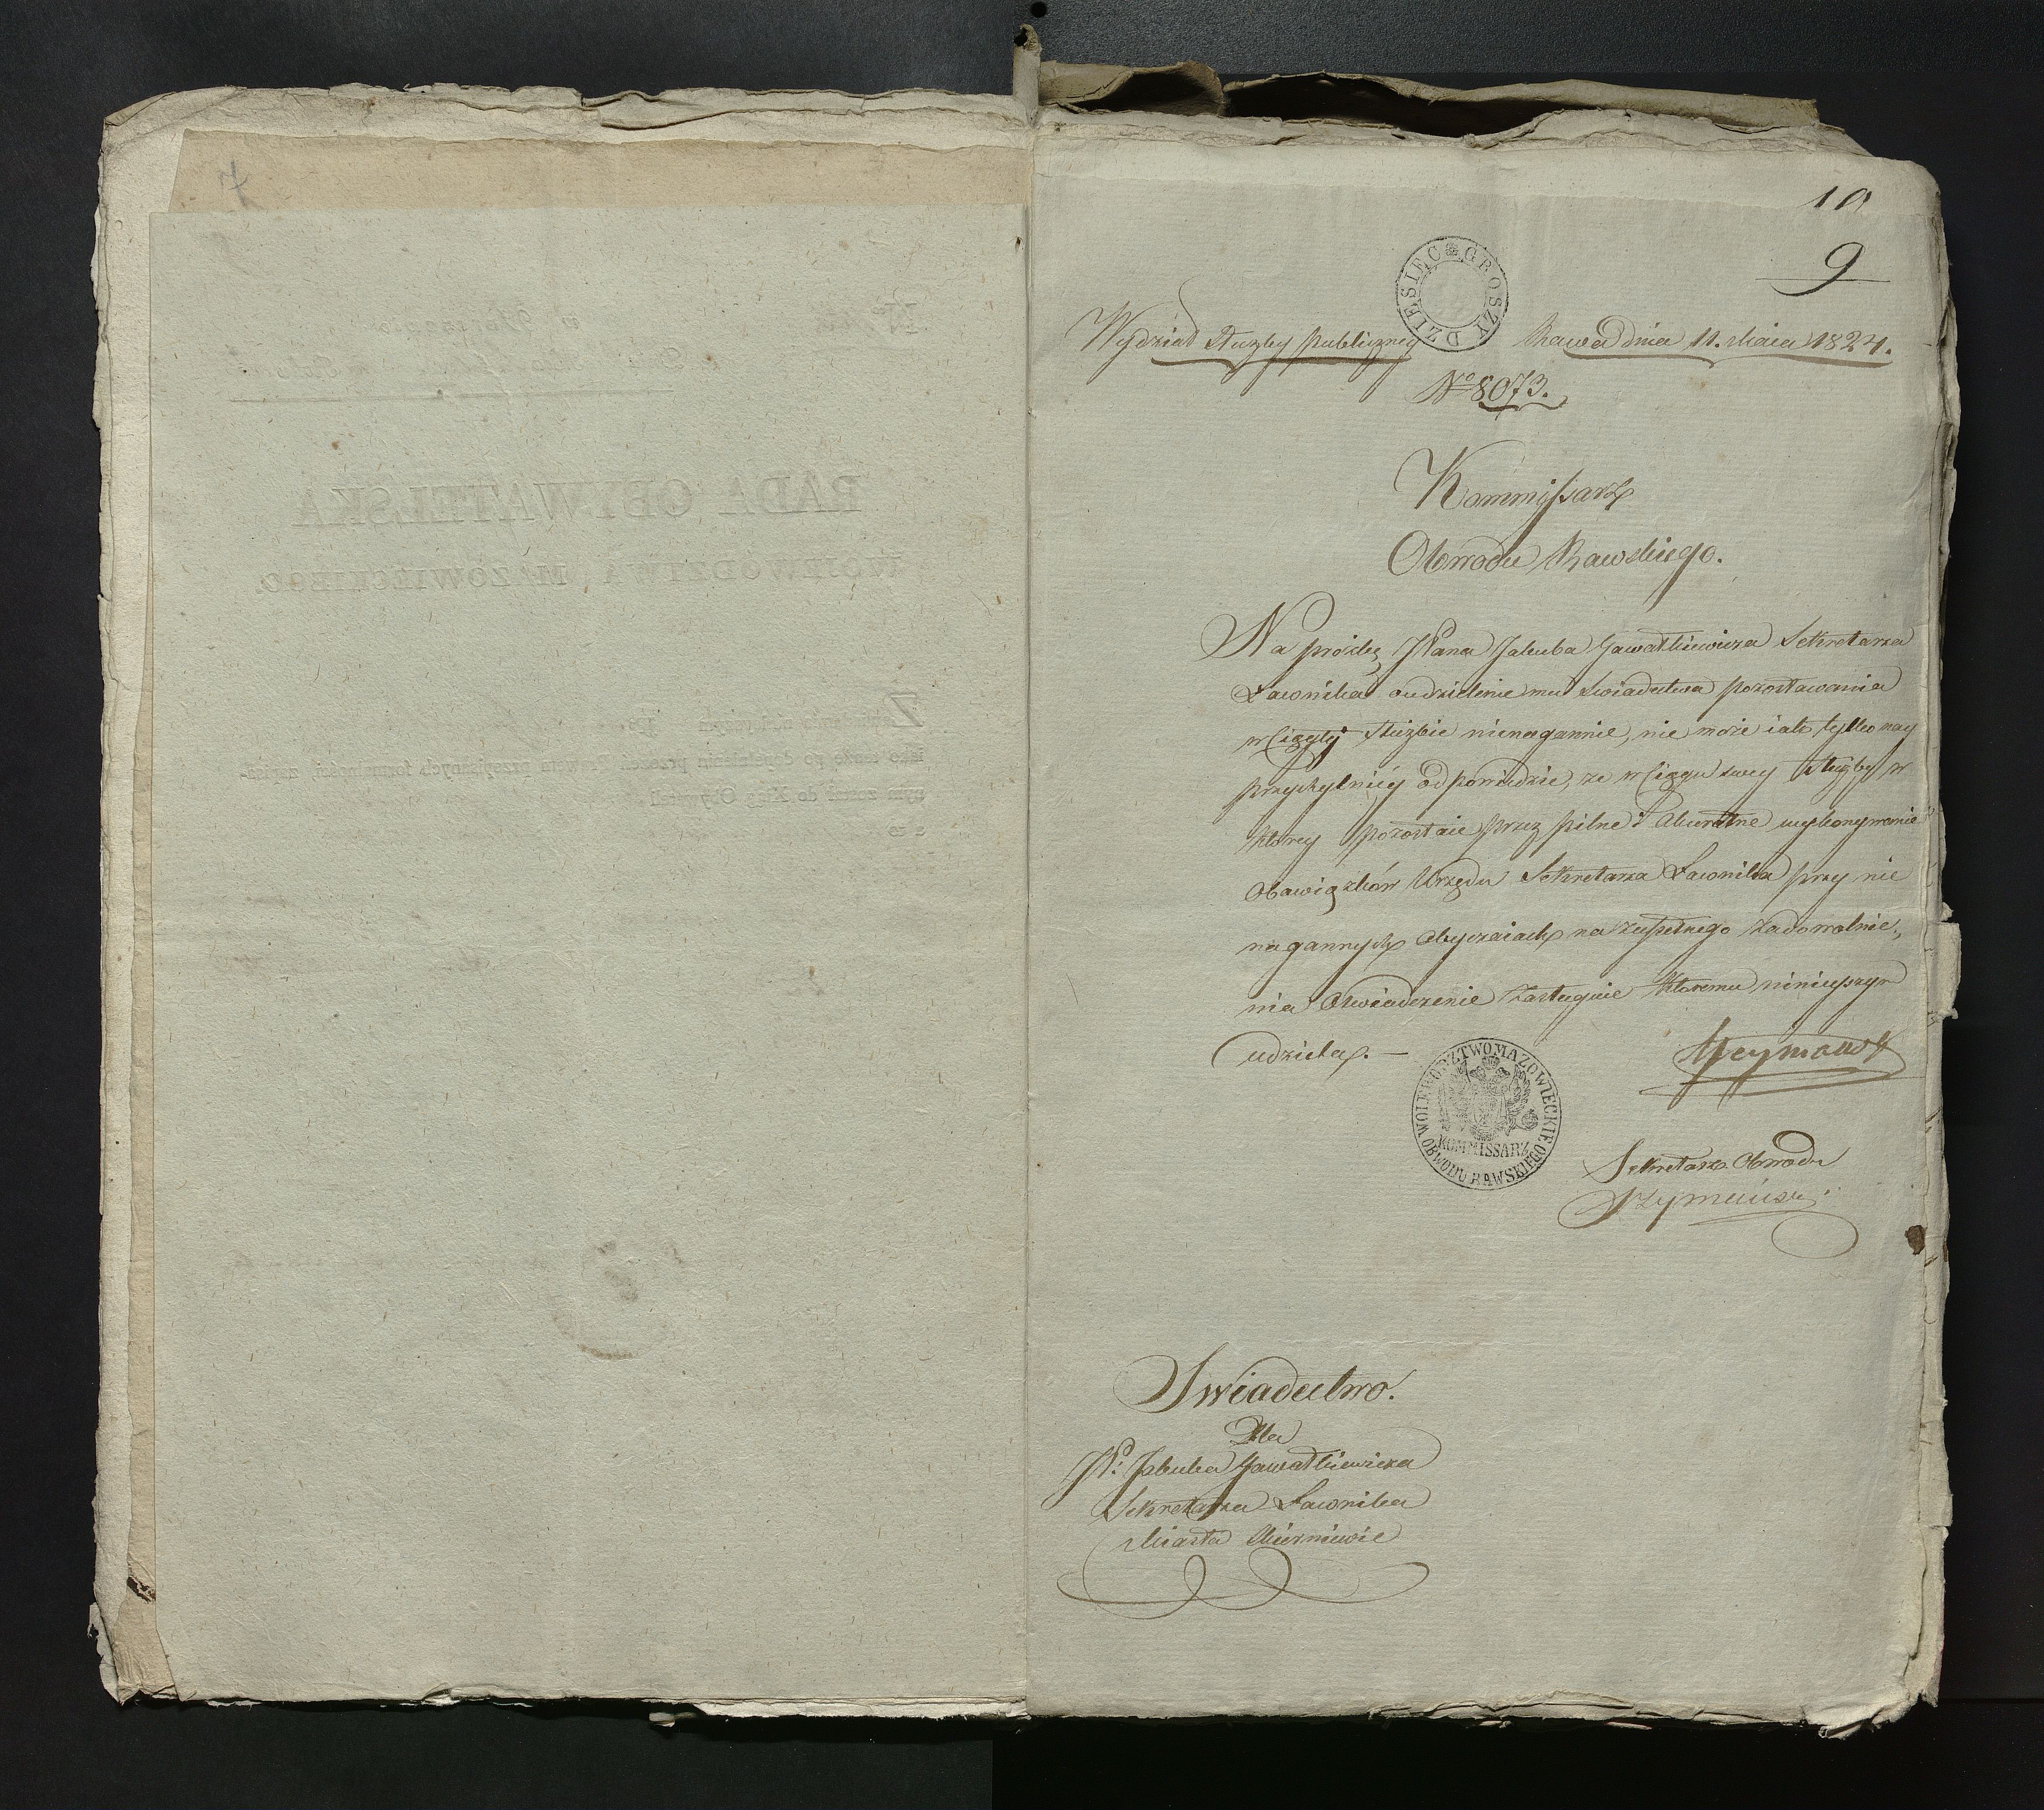 7
10
9
DZIESIĘC GROSZY
Wydział Służby publiczney
Rawa dnia 11. Maia 1824.
No 8073.
Kommissarz
Obwodu Rawskiego.
Na prożbę JPana Jakuba Gawałkiewicza Sekretarza
Ławnika o udzielenie mu Swiadectwa pozostawania
w Ciągłey Służbie nienagannie, nie może iak tylko nay
przychylniey odpowiedzieć, ze w Ciągu swey Służby w
ktorey pozostaie przez pilne i Akuratne wykonywanie
Obowiązków Urzędu Sekretarza Ławnika przy nie
nagannych Obyczaiach na zupełnego zadowolnie„
nia Oswiadczenie zasługuie ktoremu ninieyszym
udziela. —
WOIEWODZTWO MAZOWIECKIE
KOMMISSARZ
OBWODU RAWSKIEGO
Sekretarz Obwodu
Swiadectwo.
Dla
JP: Jakuba Gawałkiewicza
Sekretarza Ławnika
Miasta Skierniewic
RADA OBYWATELSKA
WOJEWODZTWA MAZOWIECKIEGO.